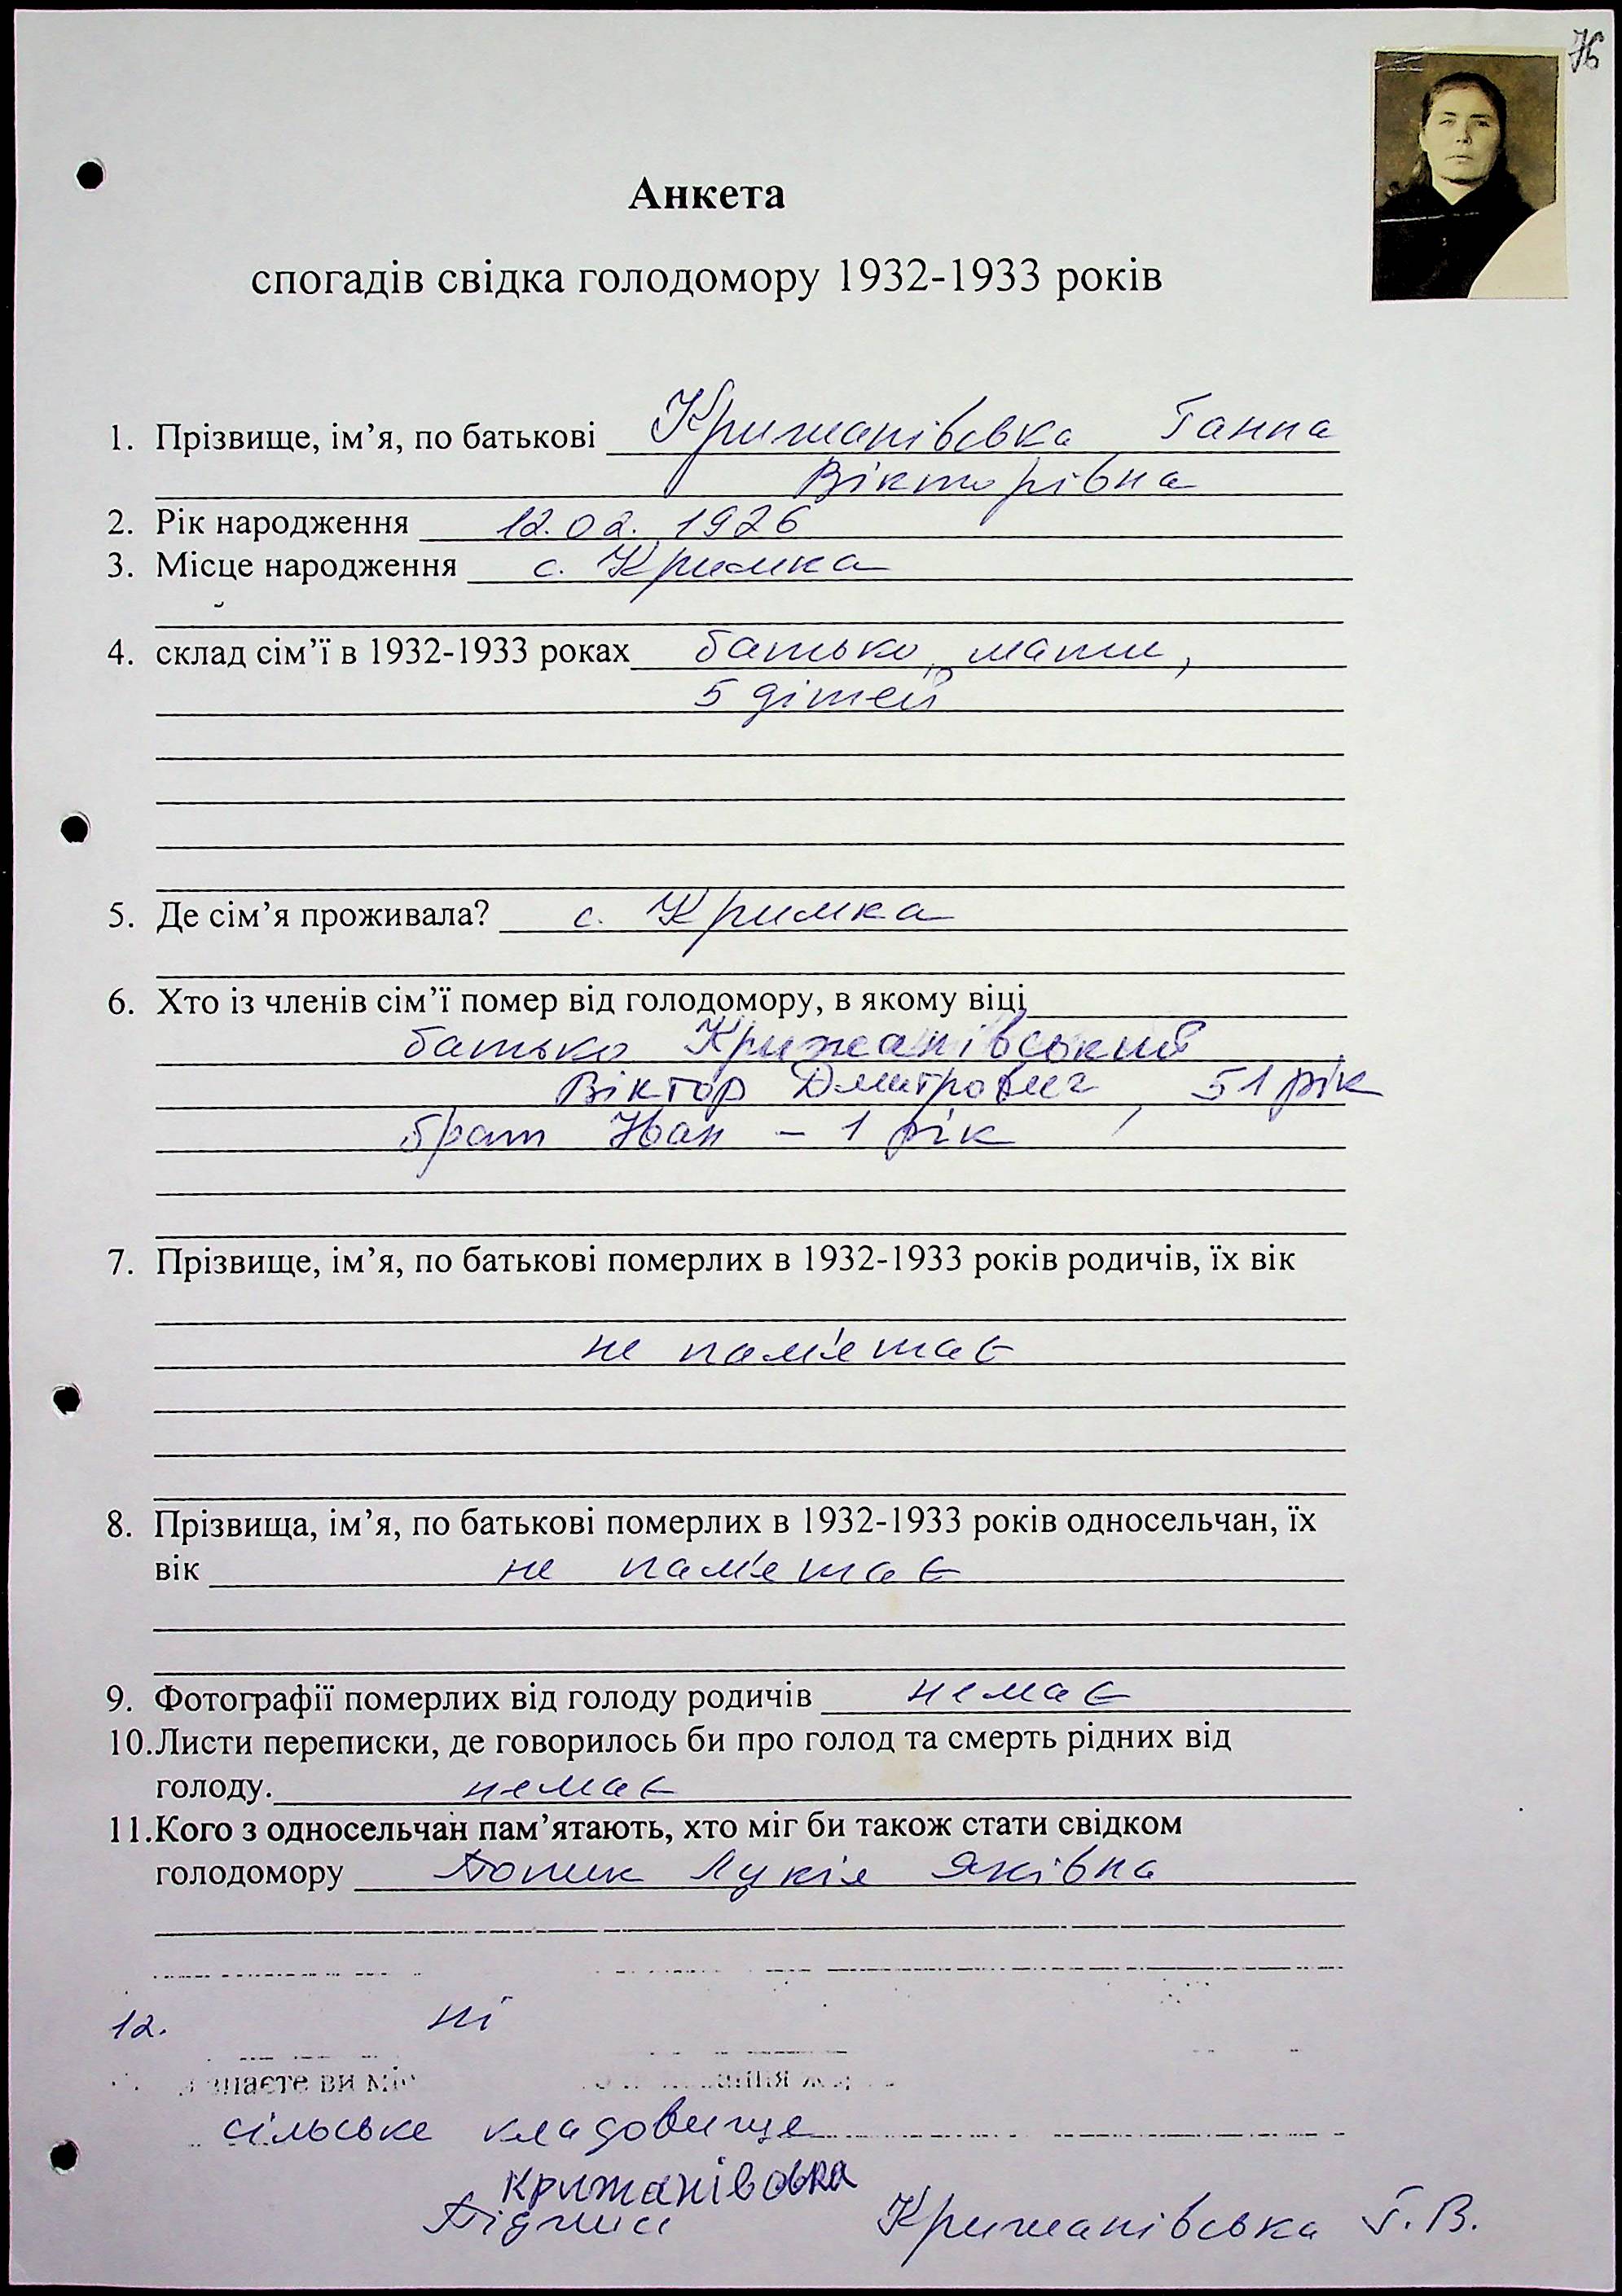 76
Анкета
спогадів свідка голодомору 1932-1933 років
1. Прізвище, ім’я, по батькові Крижанівська Ганна
Вікторівна
2. Рік народження 12.02.1926
3. Місце народження с. Кримка
4. склад сім’ї в 1932-1933 роках батько, мати,
5 дітей
5. Де сім’я проживала? с. Кримка
6. Хто із членів сім’ї помер від голодомору, в якому віці
батько Крижанівський
Віктор Дмитрович, 51 рік
брат Іван – 1 рік
7. Прізвище, ім’я, по батькові померлих в 1932-1933 років родичів, їх вік
не пам'ятає
8. Прізвища, ім’я, по батькові померлих в 1932-1933 років односельчан, їх
вік не пам'ятає
9. Фотографії померлих від голоду родичів немає
10.Листи переписки, де говорилось би про голод та смерть рідних від
голоду. немає
11.Кого з односельчан пам’ятають, хто міг би також стати свідком
голодомору Попик Лукія Яківна
12. ні
знаєте ви
сільське кладовище
Крижанівська
Підпис Крижанівська Г.В.